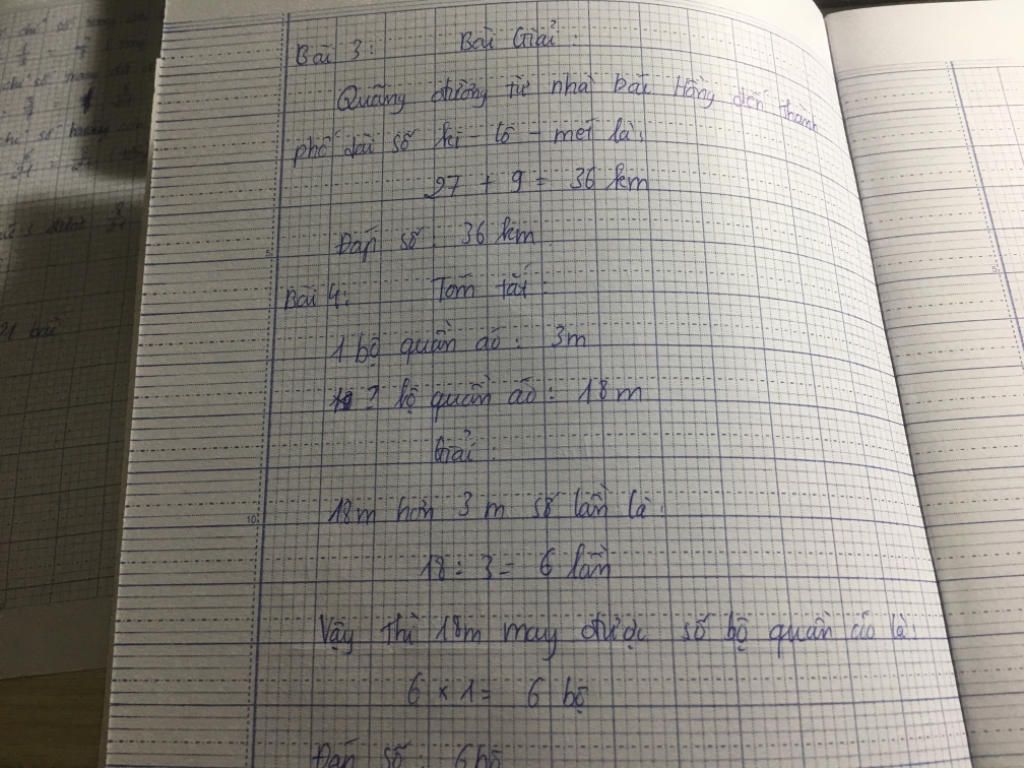 Bài 3: Bài Giải:
Quãng đường từ nhà bác Hồng đến thành
phố dài số ki - lô - mét là:
27 + 9 = 36 km
Đáp số: 36 km
Bài 4: Tóm tắt:
1 bộ quần áo: 3m
? bộ quần áo: 18 m
Giải:
18m hơn 3 m số lần là:
18 : 3 = 6 lần
Vậy thì 18m may được số bộ quần áo là:
6 x 1 = 6 bộ
Đáp số: 6 bộ